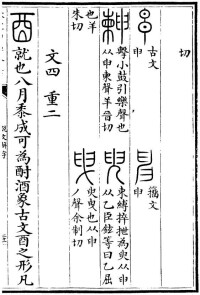 切
古文
申
籒文
申
朄
擊小鼓引樂聲也
从申柬聲羊晉切
臾
束縛捽抴為臾从申
从乙臣鉉等曰乙屈
也羊
朱切
曳
臾曳也从申
丿聲余制切
文四 重二
酉 就也八月黍成可為酎酒象古文酉之形凡